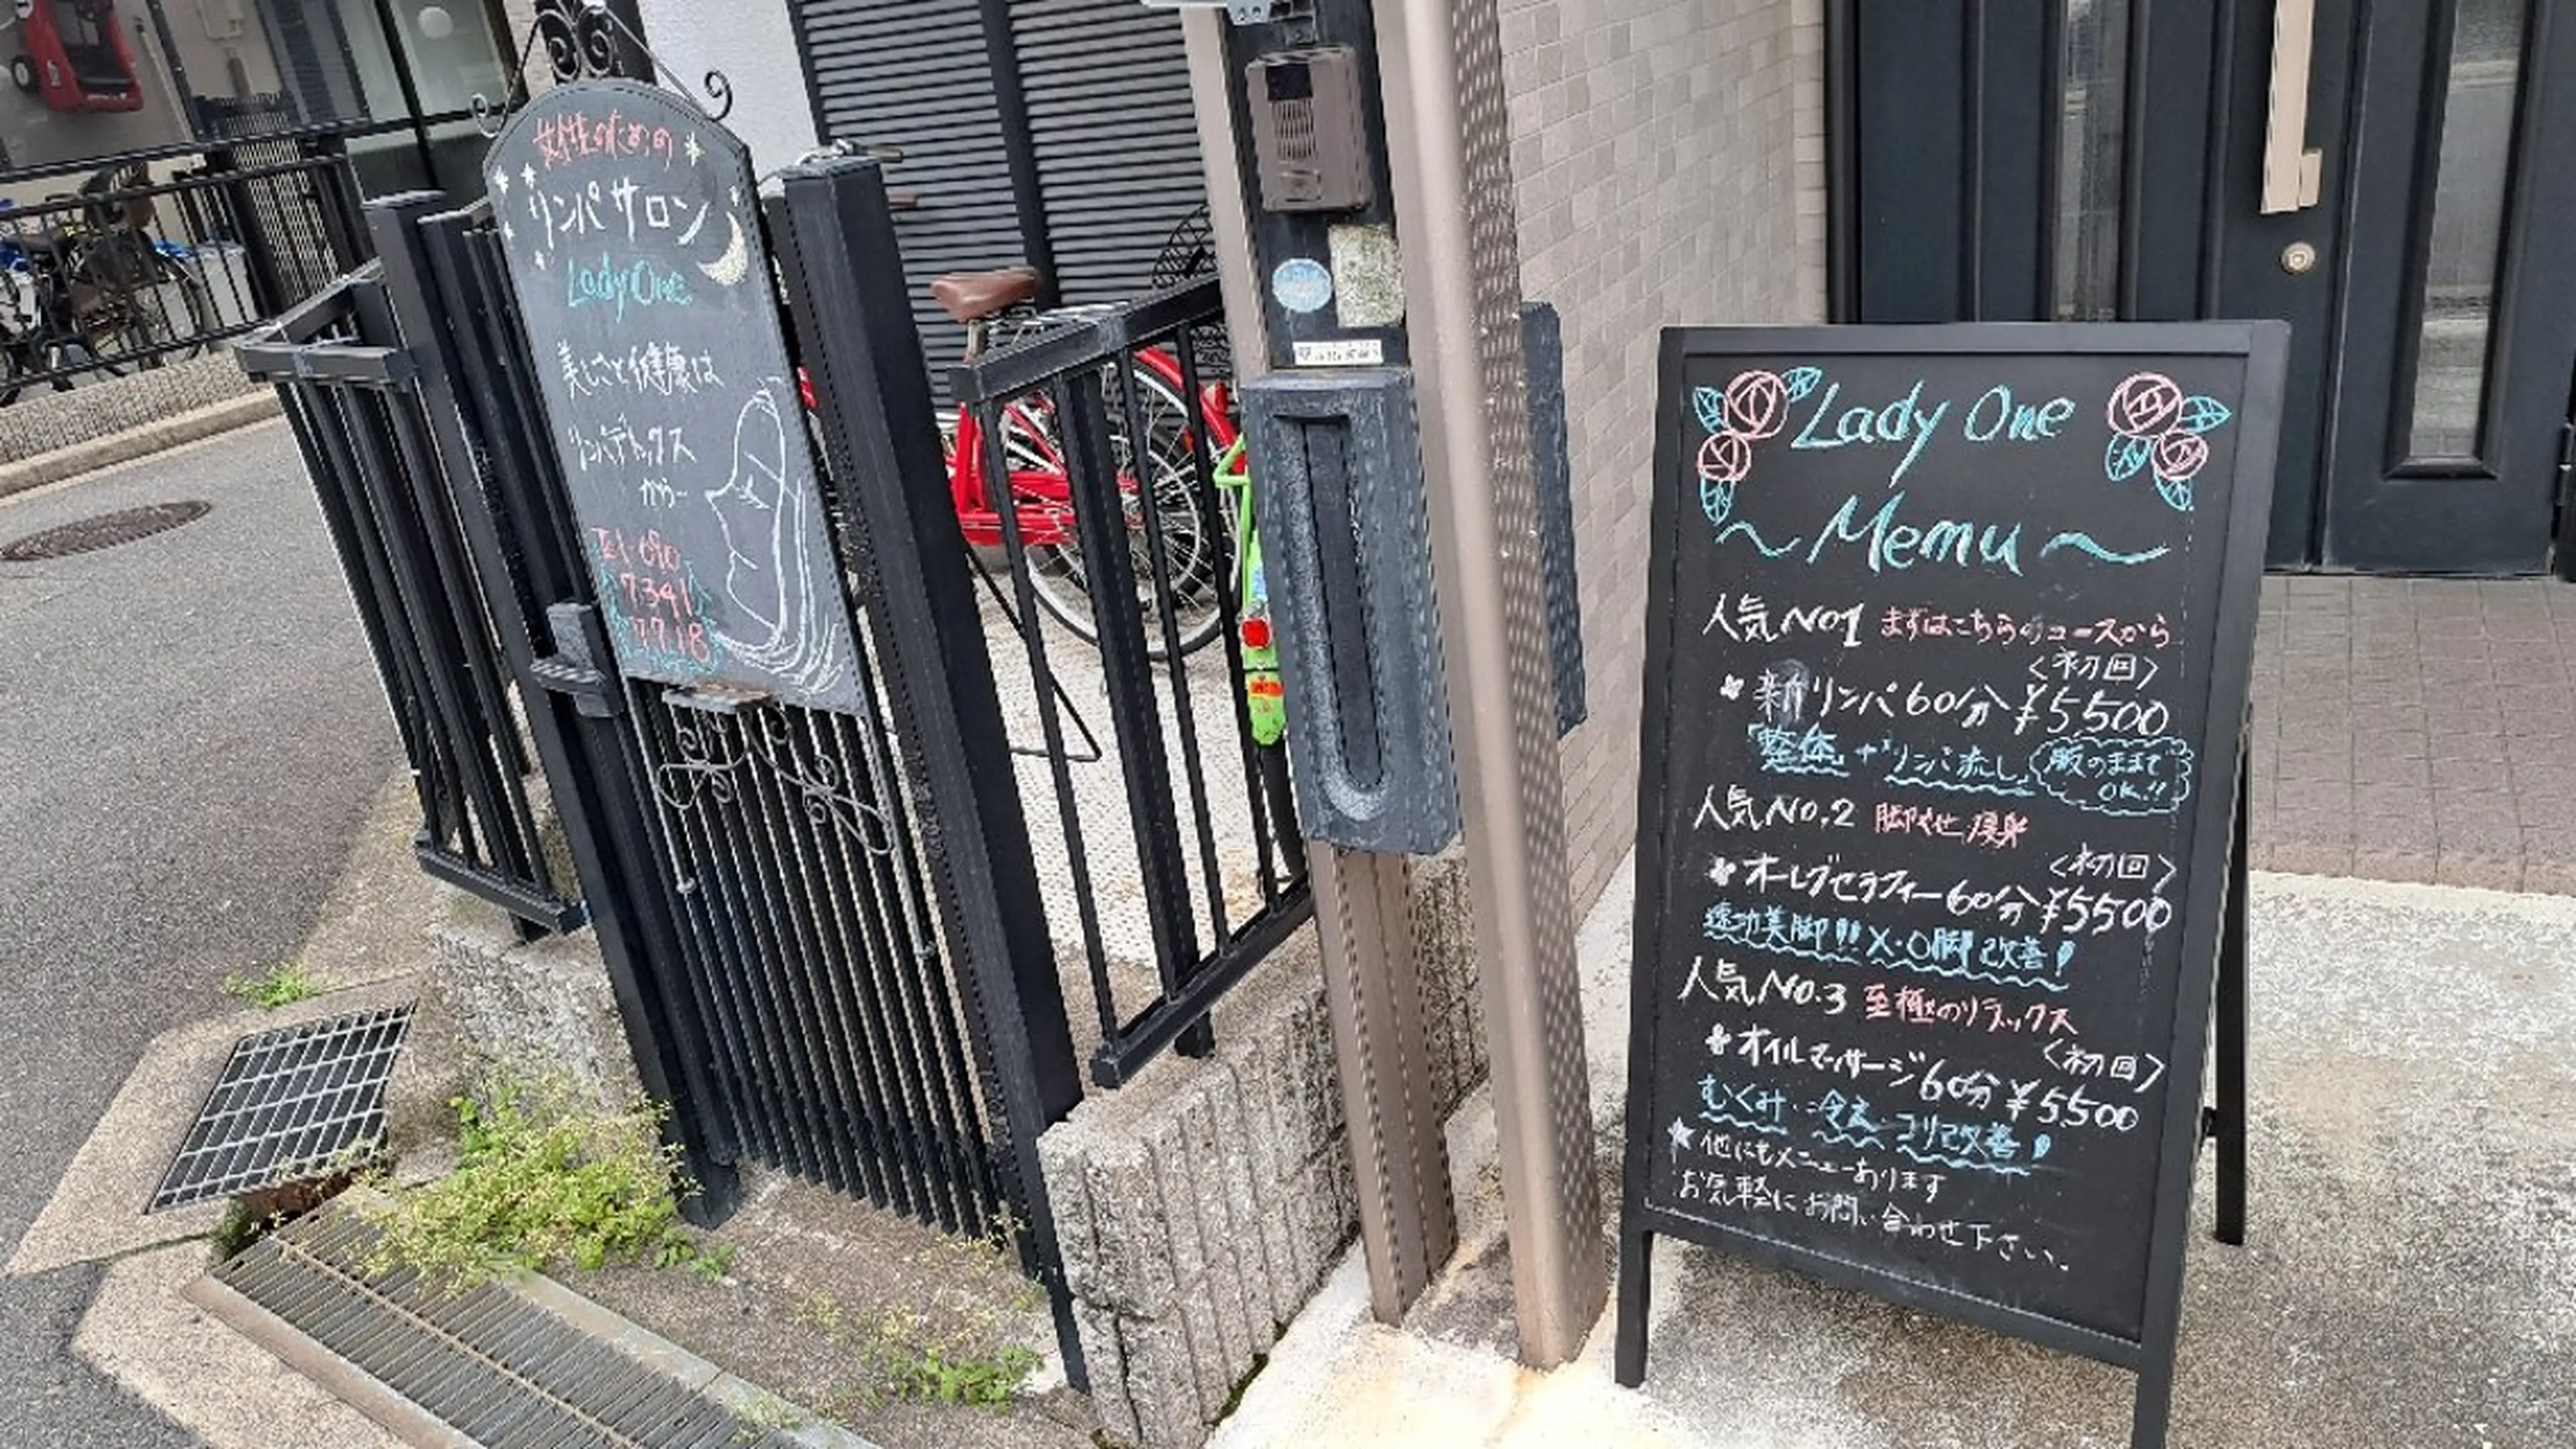 女性のための
リンパサロン
Lady One
美しさと健康は
リンパデトックス
から~
Tel 090
7341
7718
Lady One
~Menu~
人気No1 まずはこちらのコースから
<初回>
新リンパ60分 ¥5,500
「整体」+「リンパ流し」 服のままで
OK!!
人気No.2 脚やせ 痩身
<初回>
オーレブセラフィー60分 ¥5500
速功美脚!! X・O脚改善!
人気No.3 至極のリラックス
<初回>
オイルマッサージ60分 ¥5,500
むくみ・冷え・コリ改善!
★他にもメニューあります
お気軽にお問い合わせ下さい。